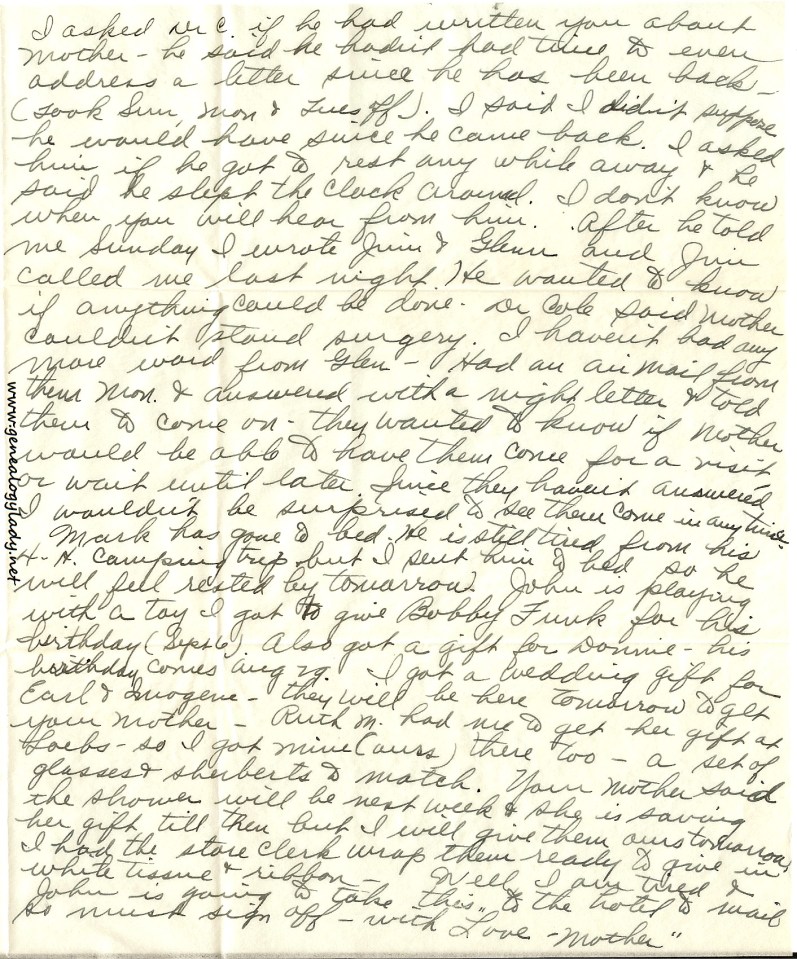 I asked Dr C. if he had written you about
Mother - he said he hadn't had time to even
address a letter since he has been back -
(took Sun, Mon & Tues off). I said I didn't suppose
he would have since he came back. I asked
him if he got to rest any while away & he
said he slept the clock around. I don't know
when you will hear from him. After he told
me Sunday I wrote Jim & Glenn and Jim
called me last night. He wanted to know
if anything could be done. Dr Cole said Mother
couldn't stand surgery. I haven't had any
more word from Glen - Had an air mail from
them Mon. & answered with a night letter & told
them to come on - they wanted to know if Mother
would be able to have them come for a visit
or wait until later. Since they haven't answered,
I wouldn't be surprised to see them come in any time.
Mark has gone to bed. He is still tired from his
4-H. camping trip but I sent him to bed so he
will feel rested by tomorrow. John is playing
with a toy I got to give Bobby Funk for his
birthday (Sept 6). Also got a gift for Donnie - his
birthday comes Aug 29. I got a wedding gift for
Earl & Imogene - they will be here tomorrow to get
your mother - Ruth M. had me to get her gift at
Loebs - so I got mine (ours) there too - a set of
glasses & sherberts to match. Your mother said
the shower will be next week & she is saving
her gift till then but I will give them ours tomorrow
I had the store clerk wrap them ready to give in
white tissue & ribbon - Well I am tired &
John is going to take this to the hotel to mail
so must sign off - with Love - Mother"
www.genealogylady.net